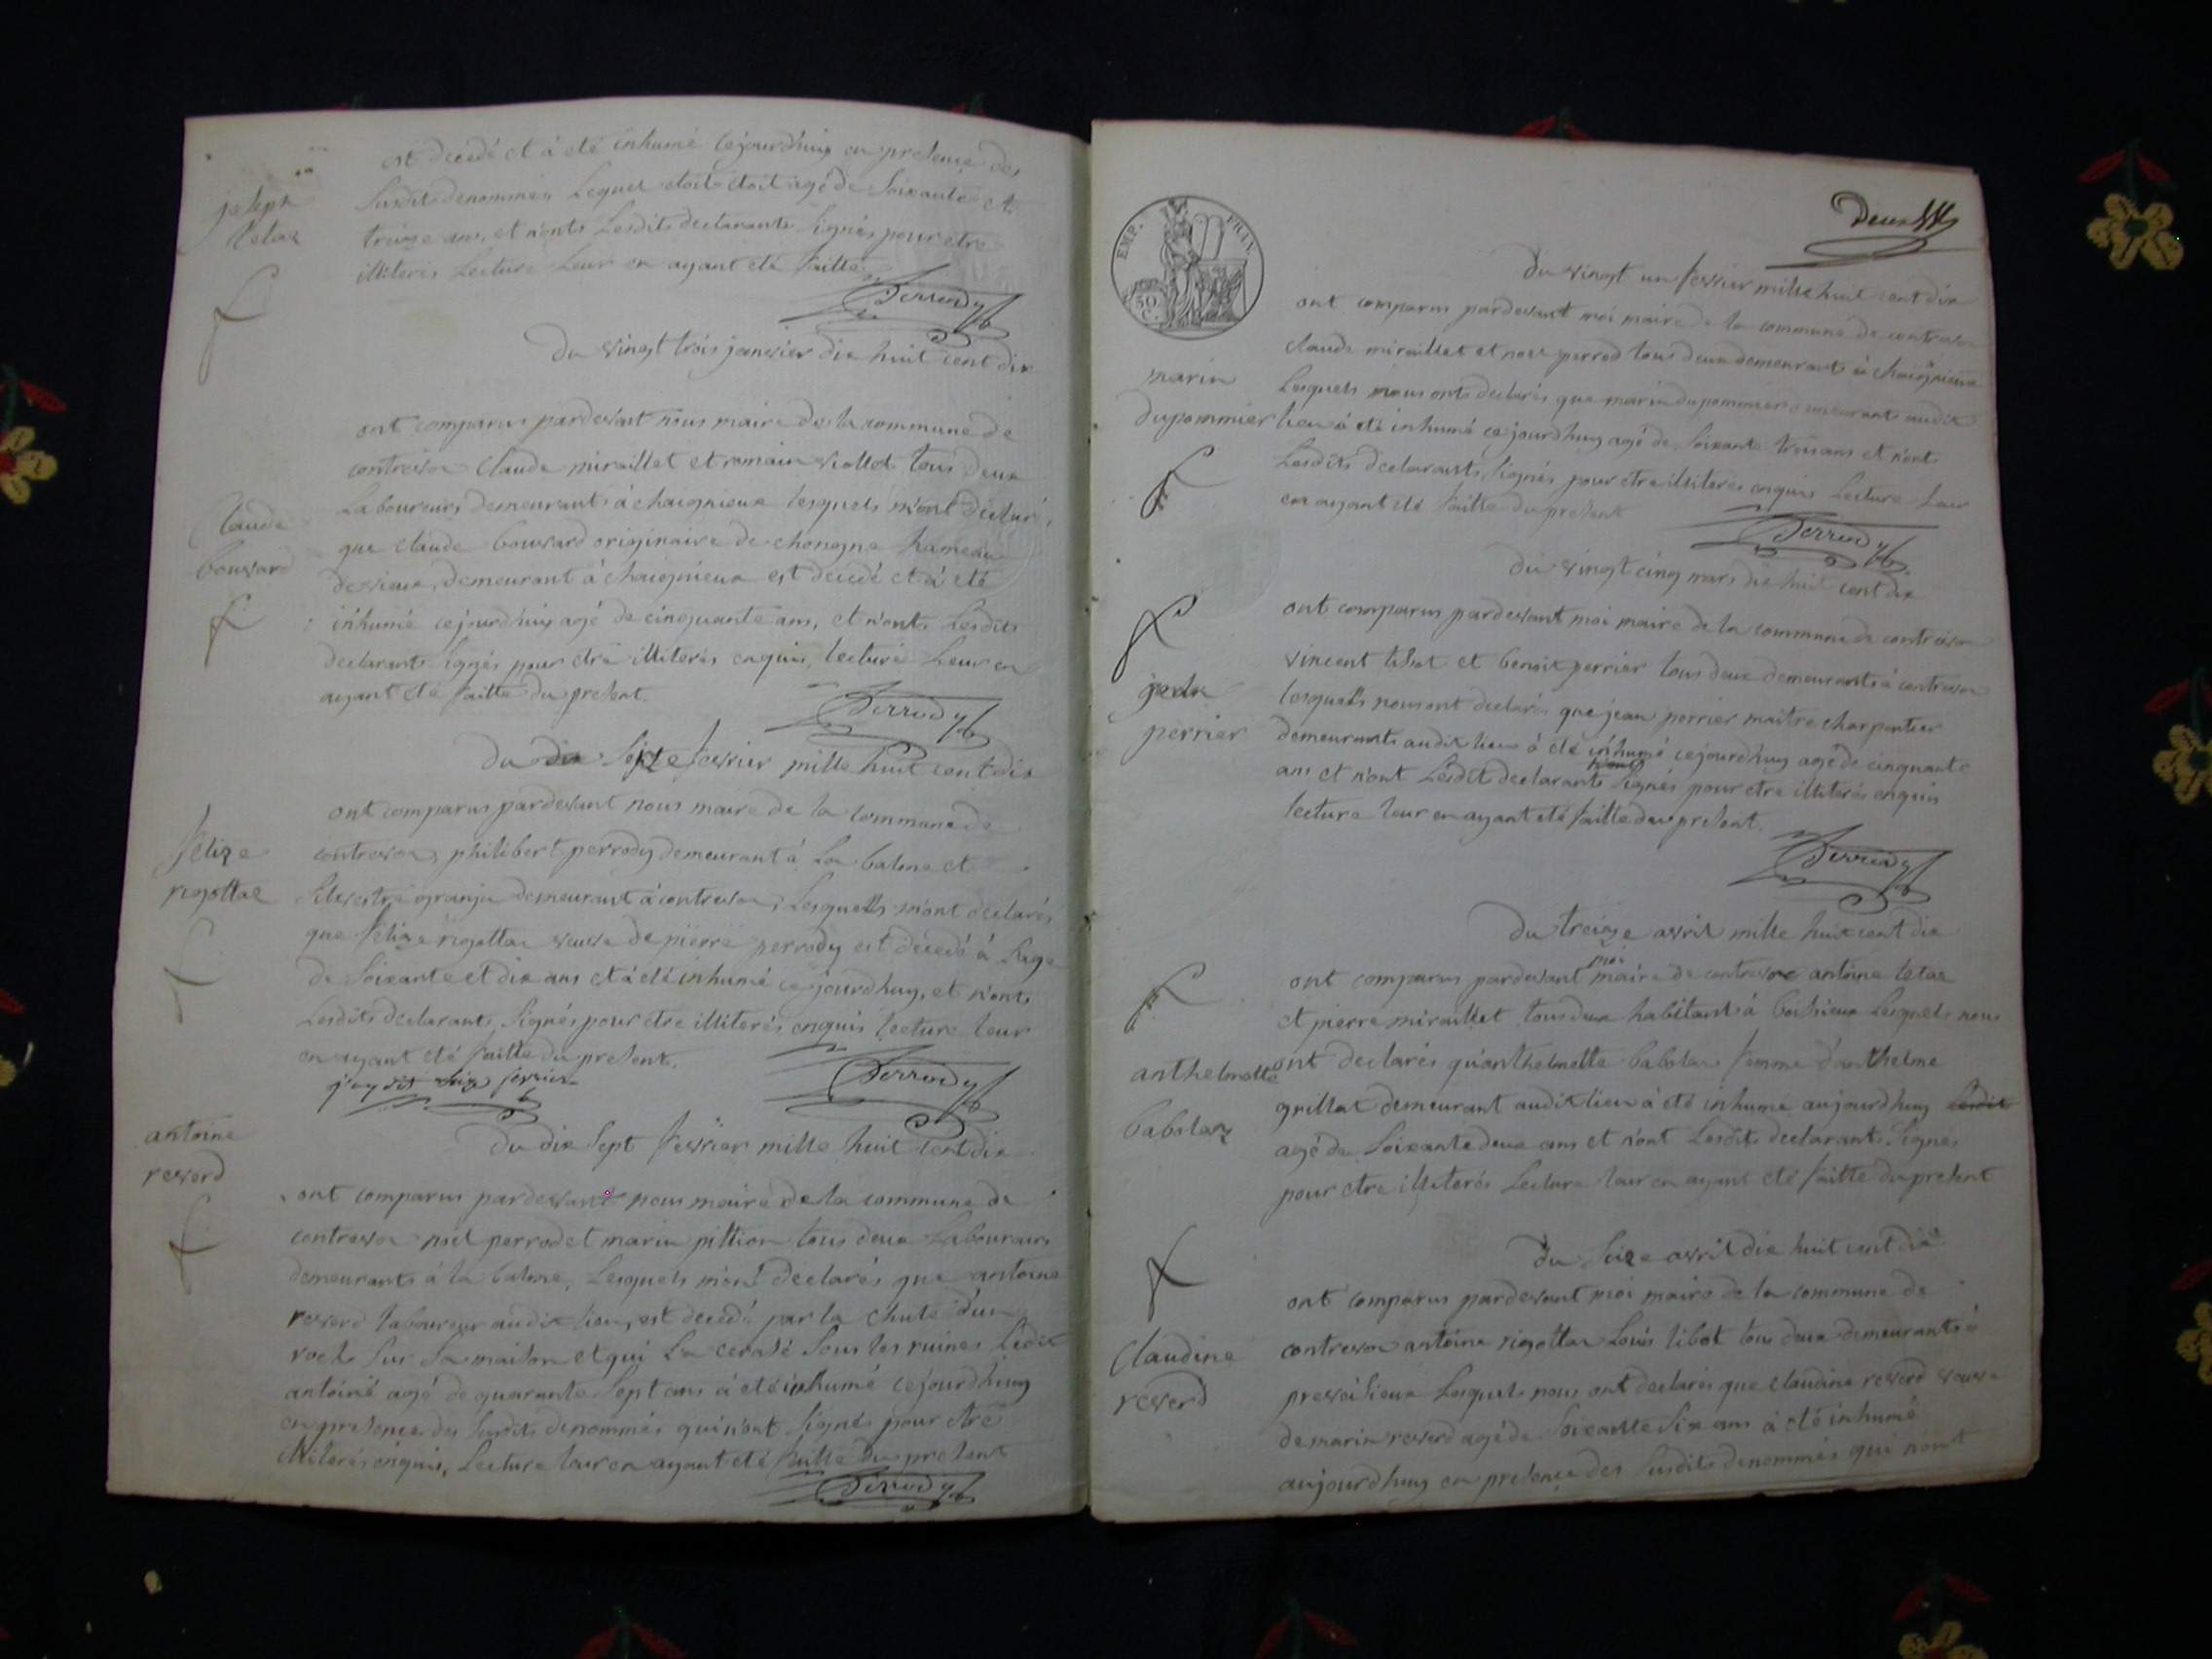 est decedé et à eté inhumé cejourd'huy en presence des
joseph
letaz
susdits denommés Lequel etoit etoit agé de Soixante et
treize ans, et n'ont Lesdits declarants Signés pour etre
illiterés Lecture Leur en ayant eté faitte.
Perrody
Du vingt trois janvier dix huit cent dix
ont comparus pardevant nous maire de la commune de
contrevoz Claude miraillet et romain viollet tous deux
Laboureurs demeurants à chaignieux lesquels m'ont declaré
Claude
bouvard
que claude bouvard originaire de chongne hameau
de vieux, demeurant à chaignieux est decedé et à eté
inhumé cejourd'huy agé de cinquante ans, et n'ont Lesdits
declarants Signés pour etre illiterés enquis, lecture Leur en
ayant eté faitte du present.
Perrody
Du dix Seize fevrier mille huit cent dix
ont comparus pardevant nous maire de la commune de
felize
rigottaz
contrevoz, philibert perrody demeurant à La balme et
Silvestre granju demeurant à contrevoz, Lesquells m'ont declarés
que felize rigottaz veuve de pierre perrody est decedé à Lage
de Soixante et dix ans et à eté inhumé cejourdhuy, et n'ont
Lesdits declarants Signés pour etre illiterés enquis lecture leur
en ayant eté faitte du present.
Perrody
j'ay dit Seize fevrier
antoine
reverd
Du dix Sept fevrier mille huit cent dix
ont comparus pardevant nous maire de la commune de
contrevoz noel perrod et marin pittion tous deux Laboureurs
demeurants à la balme, Lesquels m'ont declarés que antoine
reverd laboureur audit lieu, est decedé par la chute d'un
roch Sur Sa maison et qui La ecrasé Sous les ruines Ledit
antoine agé de quarante Sept ans à eté inhumé cejourdhuy
en presence des Susdits denommés qui n'ont Signés pour etre
illiterés enquis, Lecture leur en ayant eté faitte du present
Perrody
EMP. FRAN.
50
C.
Deux
Du vingt un fevrier mille huit cent dix
ont comparus pardevant moi maire de la commune de contrevoz
claude miraillet et noel perrod tous deux demeurants à Chaignieux
marin
dupommier
Lesquels nous ont declarés que marin dupommier demeurant audit
lieu à eté inhumé cejourdhuy agé de Soixante trois ans et n'ont
Lesdits declarants Signés pour etre illiterés enquis Lecture Leur
en ayant eté faitte du present
Perrody
Du vingt cinq mars dix huit cent dix
ont comparus pardevant moi maire de la commune de contrevoz
vincent tibot et benoit perrier tous deux demeurants à contrevoz
jean
perrier
lesquels nous ont declarés que jean perrier maitre charpentier
demeurants audit lieu à eté inhumé cejourdhuy agé de cinquante
ans et n'ont Lesdit declarants Signés pour etre illiterés enquis
lecture leur en ayant eté faitte du present.
Perrody
Du treize avril mille huit cent dix
moi
ont comparus pardevant maire de contrevoz antoine letaz
et pierre miraillet tous deux habitants à boissieux Lesquels nous
anthelmette
babolaz
ont declarés qu'anthelmette babolaz femme d'anthelme
grillat demeurant audit lieu à eté inhumé aujourdhuy Lesdit
agé de Soixante deux ans et n'ont Lesdits declarants Signes
pour etre illiterés Lecture leur en ayant eté faitte du present
Du Seize avril dix huit cent dix
ont comparus pardevant moi maire de la commune de
Claudine
reverd
contrevoz antoine rigottaz Louis tibot tous deux demeurants à
preveisieux Lesquels nous ont declarés que claudine reverd veuve
de marin reverd agé de Soixante Six ans à eté inhumé
aujourdhuy en presence des Susdits denommés qui n'ont